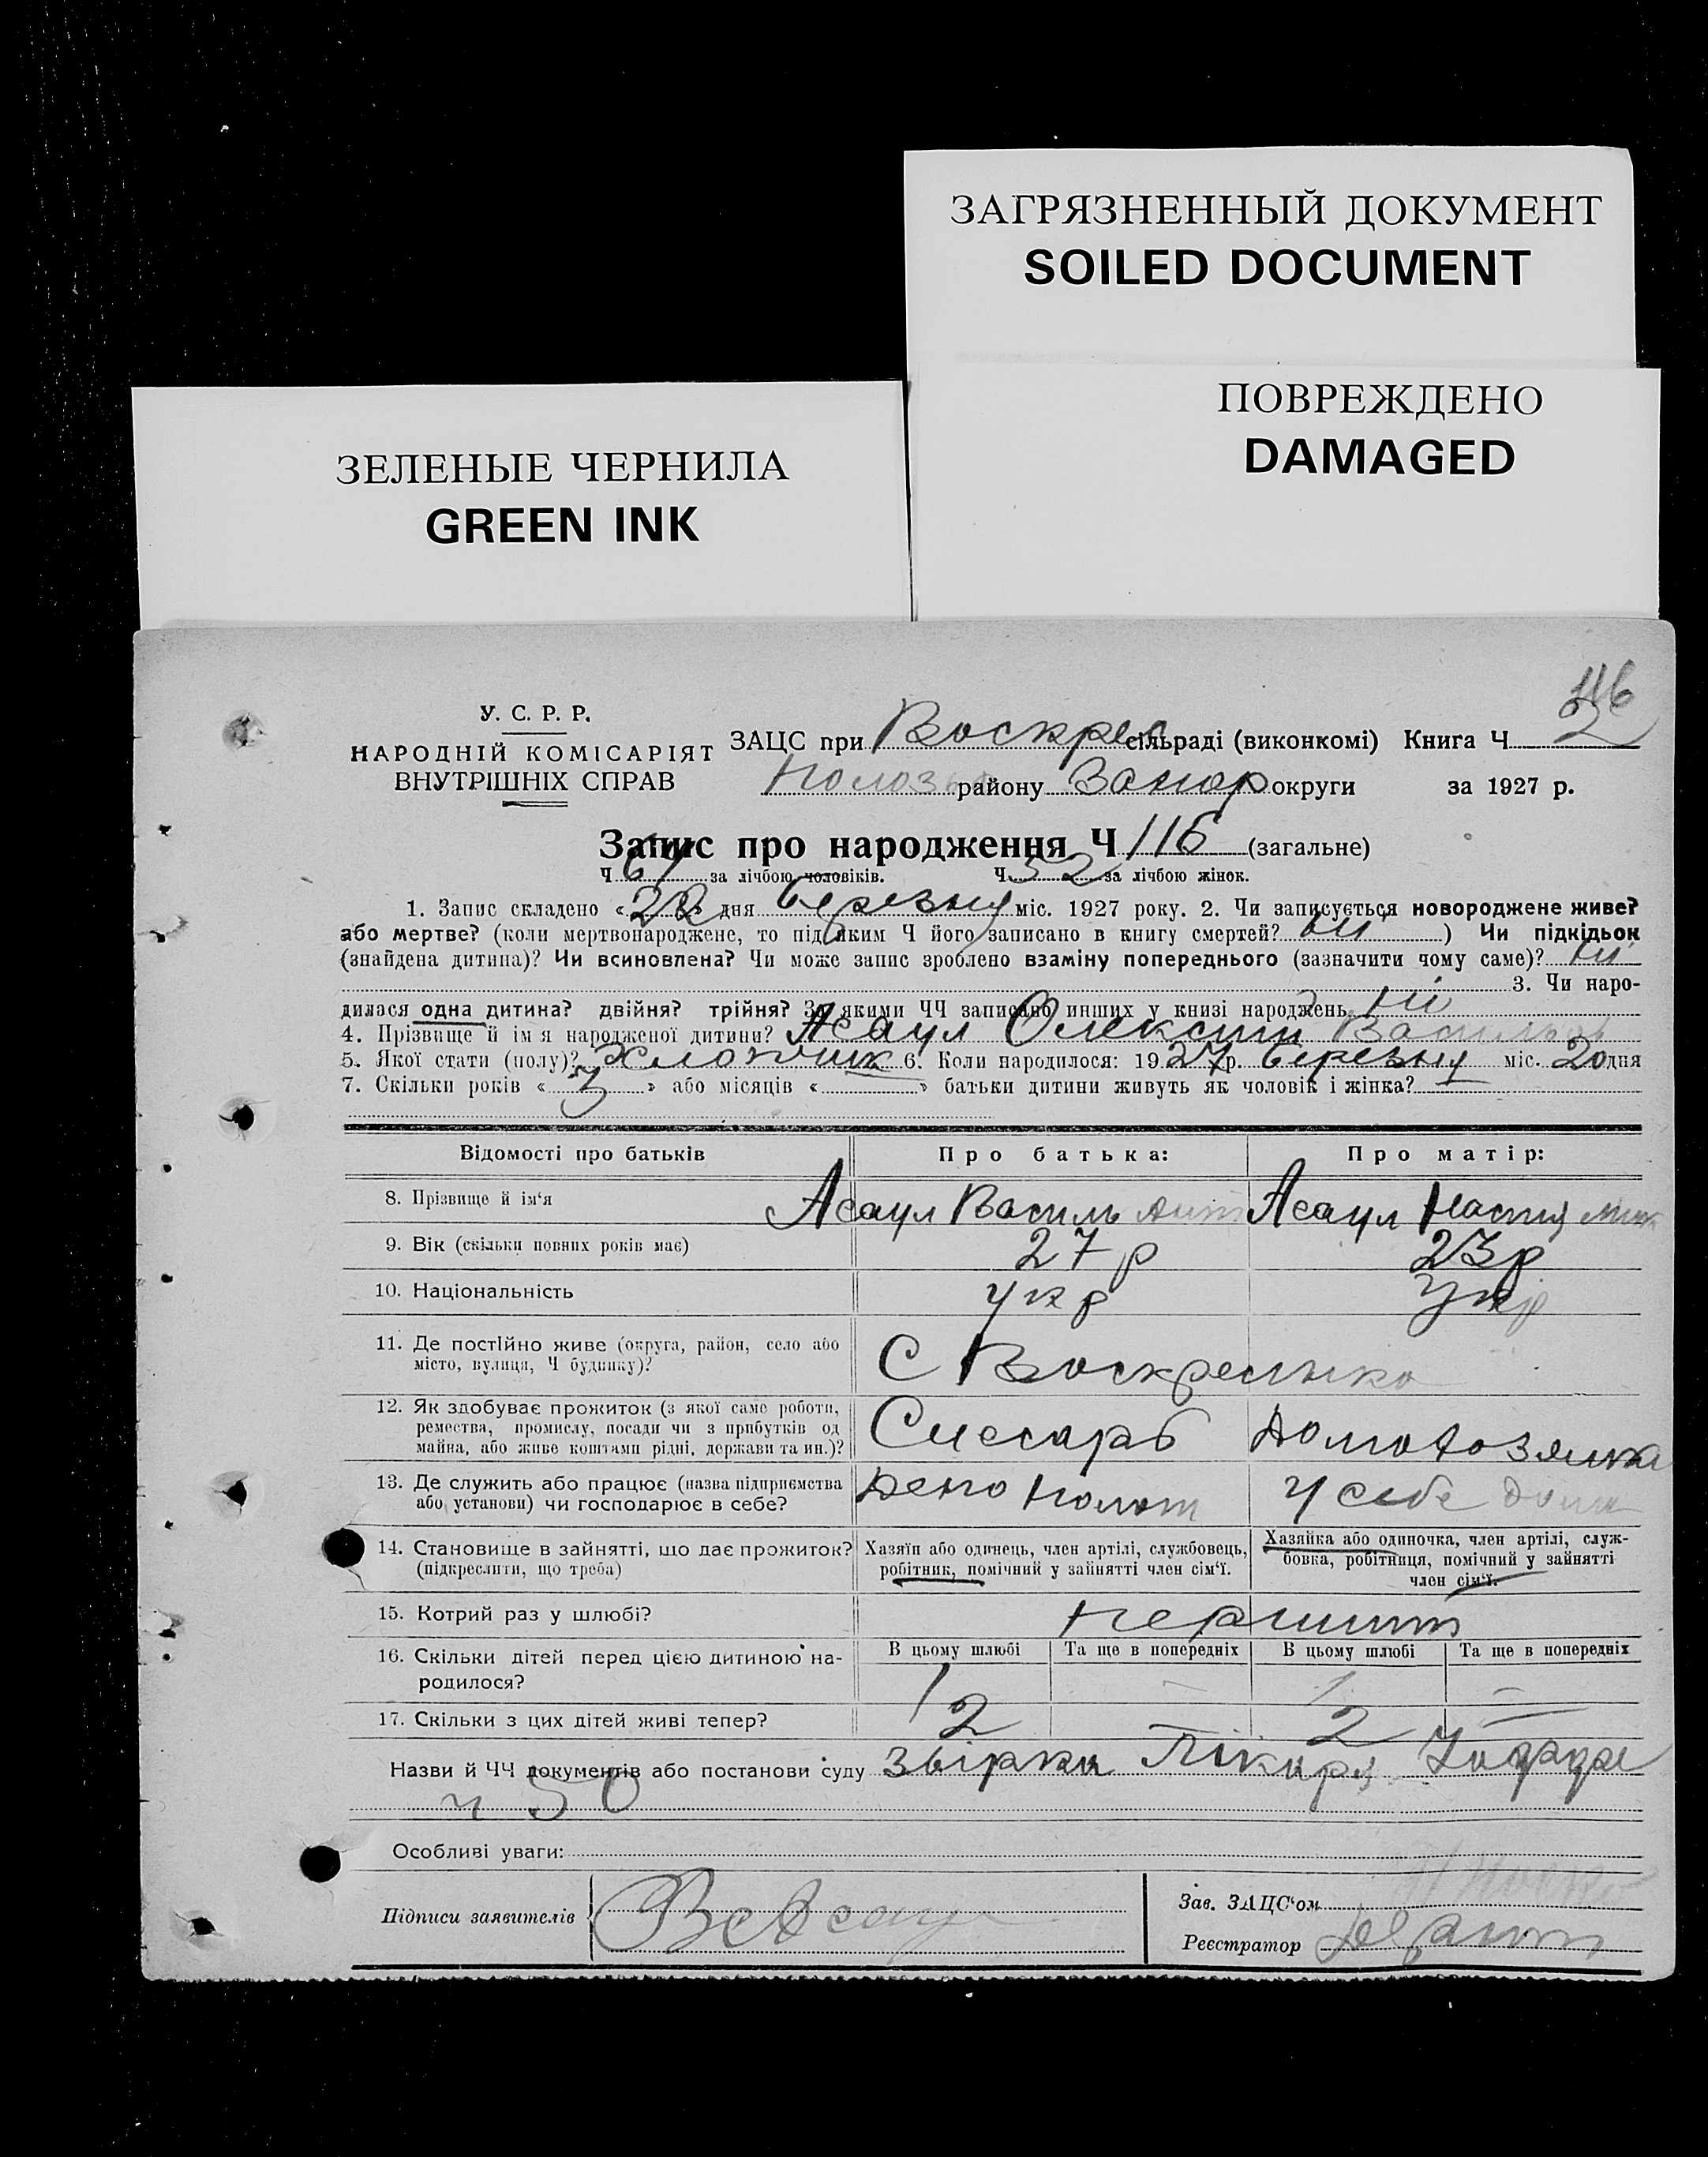 ЗАГРЯЗНЕННЫЙ ДОКУМЕНТ
SOILED DOCUMENT
ПОВРЕЖДЕНО
DAMAGED
ЗЕЛЕНЫЕ ЧЕРНИЛА
GREEN INK
116
У. С. Р. Р.
НАРОДНІЙ КОМІСАРІЯТ
ВНУТРІШНІХ СПРАВ
ЗАЦС при Воскрес сільраді (виконкомі) Книга Ч 2
району Запор округи за 1927 р.
Запис про народження Ч 116 (загальне)
Ч 64 за лічбою чоловіків. Ч 52 за лічбою жінок.
1. Запис складено « 22 » дня березня міс. 1927 року. 2. Чи записується новороджене живе?
або мертве? (коли мертвонароджене, то під яким Ч його записано в книгу смертей? ні ) Чи підкідьок
(знайдена дитина)? Чи всиновлена? Чи може запис зроблено взаміну попереднього (зазначити чому саме)? ні
3. Чи наро-
дилася одна дитина? двійня? трійня? За якими ЧЧ записано инших у книзі народжень ні
4. Прізвище й ім я народженої дитини? Асаул Олексій
5. Якої стати (полу)? Хлопчик 6. Коли народилося: 1927 р. березня міс. 20 дня
7. Скільки років « 3 » або місяців « » батьки дитини живуть як чоловік і жінка?
Відомості про батьків Про батька: Про матір:
8. Прізвище й ім‘я Асаул Василь Ант Асаул Настя
9. Вік (скільки повних років має) 27 р 23 р
10. Національність Укр Укр
11. Де постійно живе (округа, район, село або
місто, вулиця, Ч будинку)? С Воскресенка
12. Як здобуває прожиток (з якої саме роботи,
ремества, промислу, посади чи з прибутків од
майна, або живе коштами рідні, держави та ин.)? Слесарь Домохозяйка
13. Де служить або працює (назва підприємства
або установи) чи господарює в себе? Депо У себе дома
14. Становище в зайнятті, що дає прожиток?
(підкреслити, що треба)
Хазяїн або одинець, член артілі, службовець,
робітник, помічний у зайнятті член сім‘ї.
Хазяйка або одиночка, член артілі, служ-
бовка, робітниця, помічний у зайнятті
член сім‘ї.
15. Котрий раз у шлюбі? перший
16. Скільки дітей перед цією дитиною на-
родилося?
В цьому шлюбі Та ще в попередніх В цьому шлюбі Та ще в попередніх
1 — 1 —
17. Скільки з цих дітей живі тепер? 2 — 2 —
Назви й ЧЧ документів або постанови суду
ч 50
Особливі уваги:
Підписи заявителів
Зав. ЗАЦС‘ом
Реєстратор